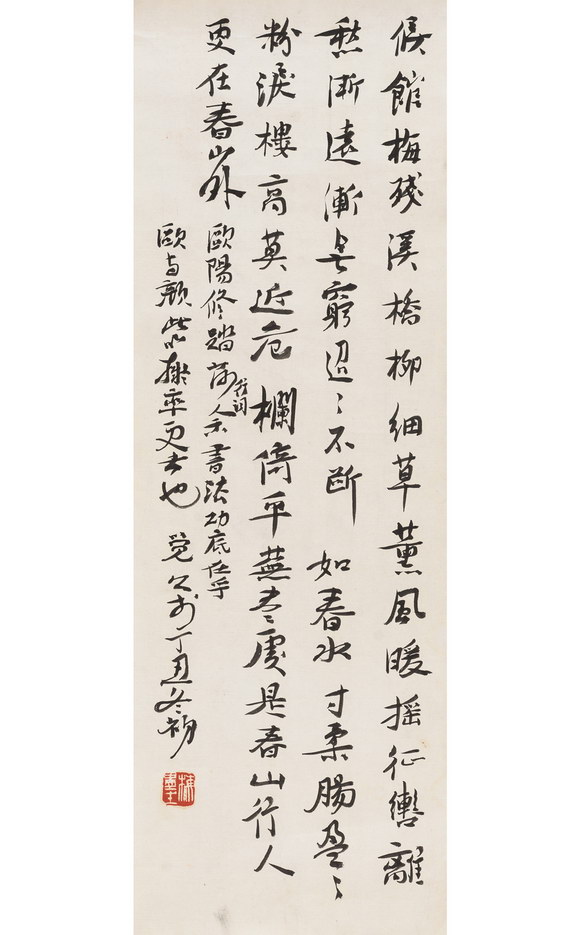 候館梅殘溪橋柳細草薰風暖搖征轡離
愁漸遠漸無窮迢〻不斷 如春水寸柔腸盈〻
粉淚樓高莫近危欄倚平蕪盡〻處是春山行人
更在春山外
歐陽修踏莎行詞 人云書法功底在乎
歐与顏此擬率更书也 覺公於丁丑冬初